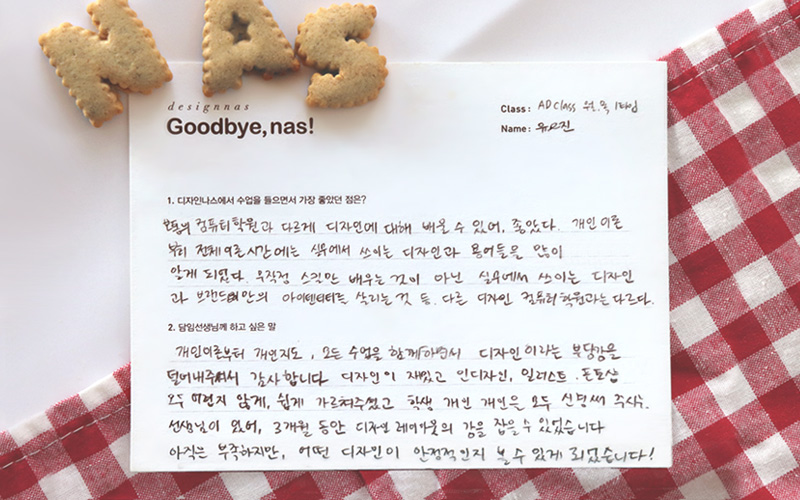 NAS
designnas
Goodbye, nas!
Class: AD class 월.목 1타임
Name: 유
진
1. 디자인나스에서 수업을 들으면서 가장 좋았던 점은?
컴퓨터학원과 다르게 디자인에 대해 배울 수 있어, 좋았다. 개인이론
특히 전체이론시간에는 실무에서 쓰이는 디자인과 용어들을 많이
알게 되었다. 무작정 스킬만 배우는 것이 아닌 실무에서 쓰이는 디자인
과 브랜드 의 아이덴티티를 살리는 것 등. 다른 디자인 컴퓨터학원과는 다르다.
2. 담임선생님께 하고 싶은 말
개인이론부터 개인지도, 모든 수업을 함께하면서 디자인이라는 부담감을
덜어내주셔서 감사합니다 디자인이 재밌고 인디자인, 일러스트. 포토샵
모두 어렵지 않게, 쉽게 가르쳐주셨고 학생 개인 개인을 모두 신경써 주셨.
선생님이 있어, 3개월 동안 디자인 레이아웃의 감을 잡을 수 있었습니다
아직은 부족하지만, 어떤 디자인이 안정적인지 볼 수 있게 되었습니다!